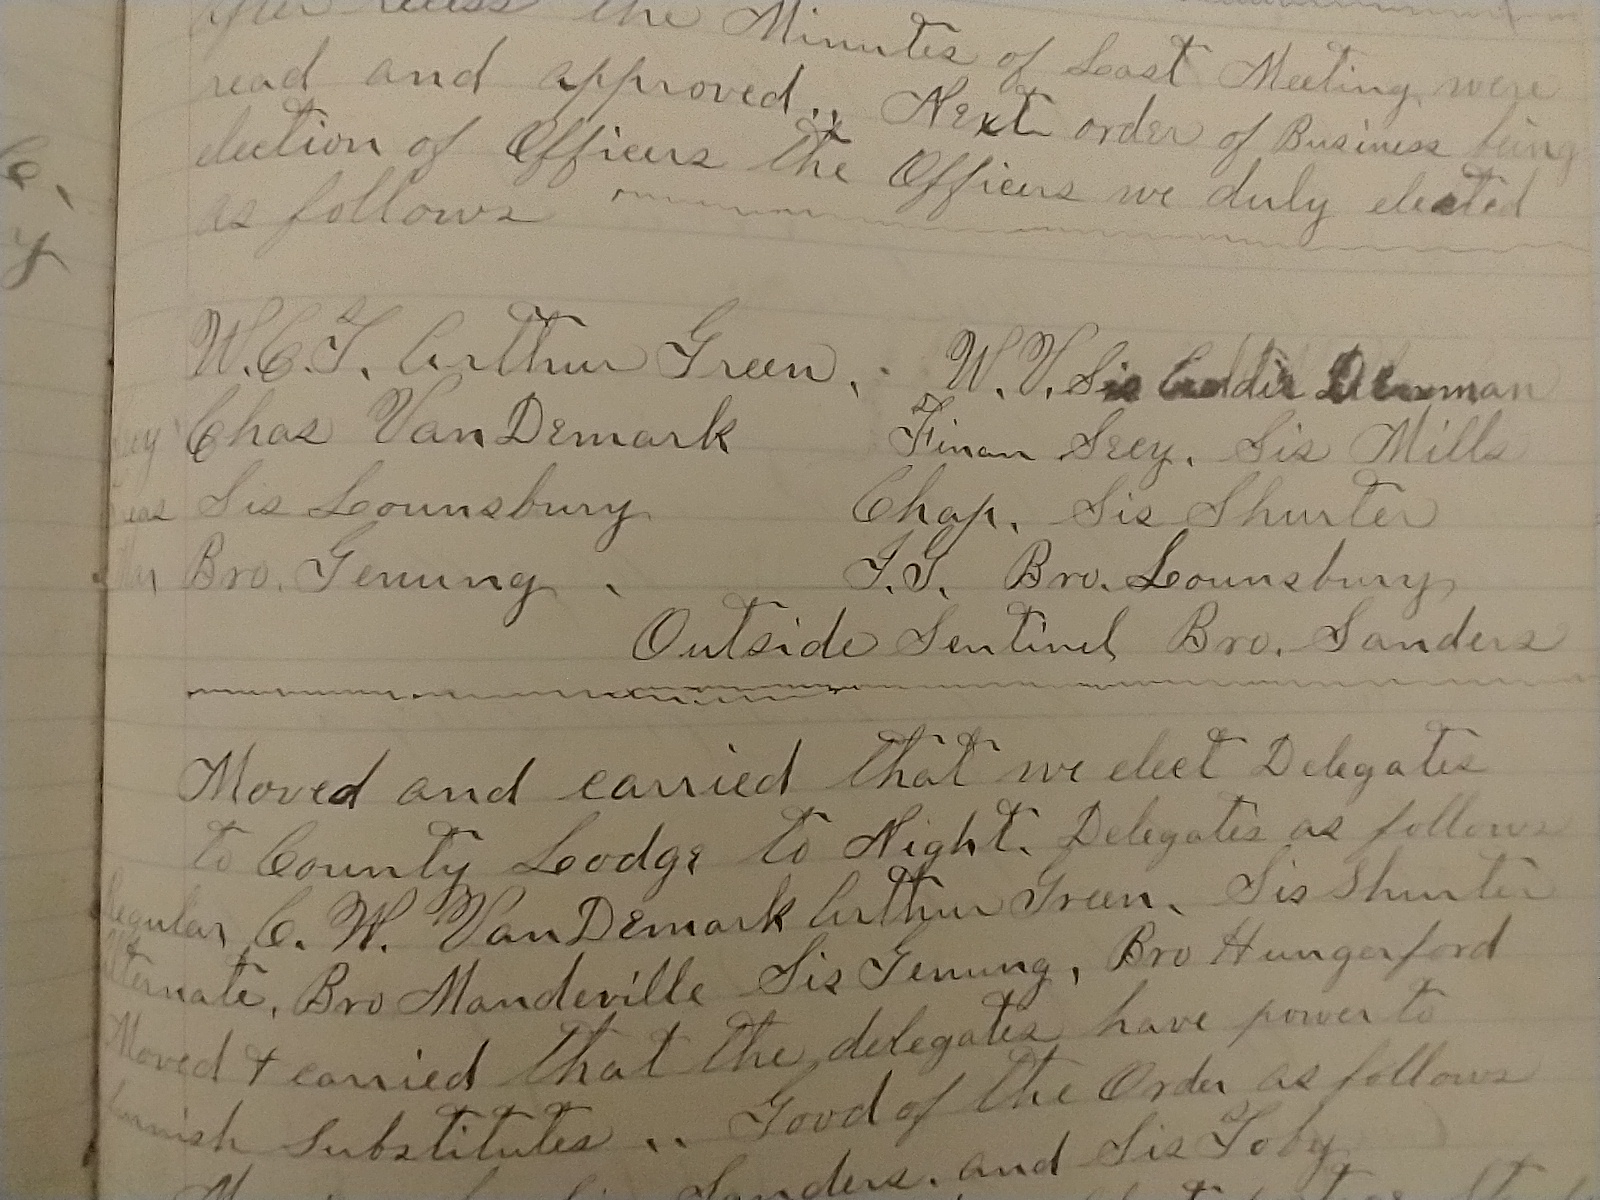 After recess the Minutes of Last Meeting were
read and approved, Next order of Business being
election of Officers the Officers we duly elected
as follows
W.C.T. Arthur Green. W.V. Sis
Secy Chas VanDemark Finan Secy, Sis Mills
Treas Sis Lounsbury Chap, Sis Shurter
Bro. Tenning. P.C.T. Bro. Lounsbury
Outside Sentinel Bro. Sanders
Moved and carried that we elect Delegates
to County Lodge to Night, Delegates as follows
Regular, C. W. VanDemark Arthur Green, Sis Shurter
Alternate, Bro Mandeville Sis Tenning, Bro Hungerford
Moved & carried that the delegates have power to
furnish Substitutes " Good of the Order as follows
Sanders. and Sis Toby